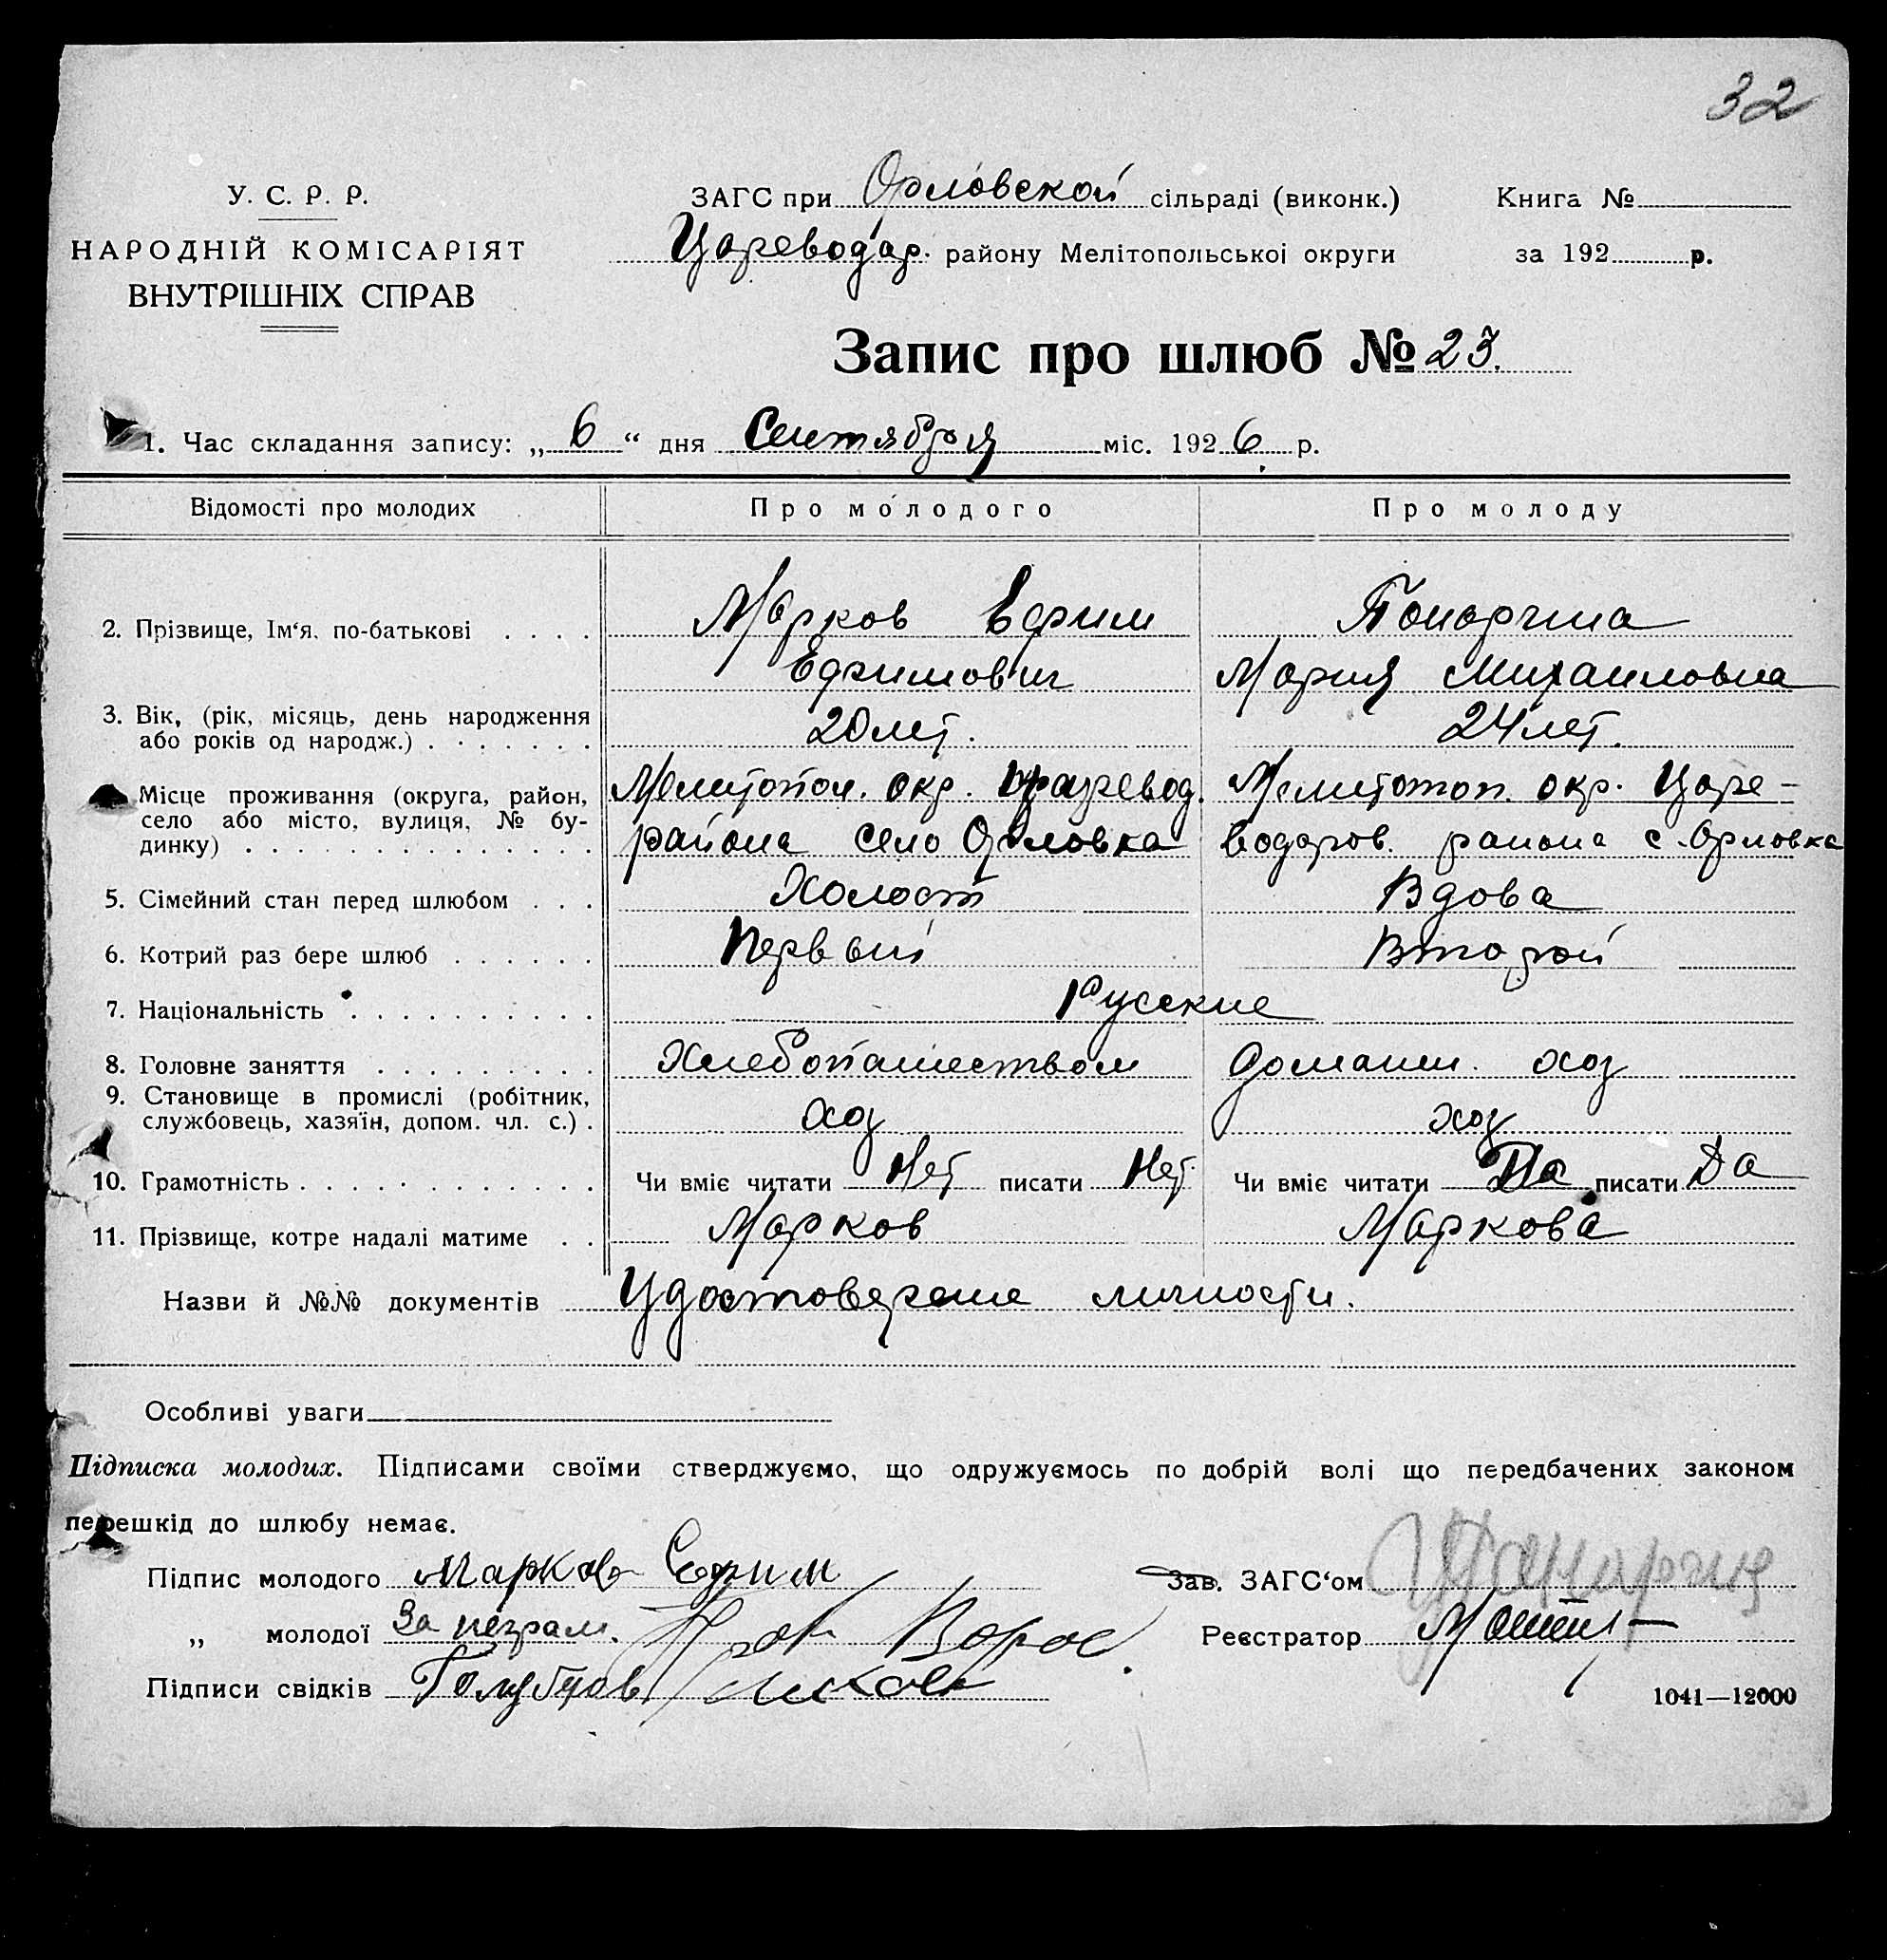 32
У. С. Р. Р.
НАРОДНІЙ КОМІСАРІЯТ
ВНУТРІШНІХ СПРАВ
ЗАГС при Орловской сільраді (виконк.)
Цареводар. району Мелітопольської округи
Книга №
за 192 р.
Запис про шлюб № 23.
1. Час складання запису: „ 6 “ дня Сентября міс. 1926 р.
Відомості про молодих Про молодого Про молоду
2. Прізвище, Ім‘я, по-батькові Марков Ефим Понарчина
Ефимович Мария Михаиловна
3. Вік, (рік, місяць, день народження
або років од народж.) 20 лет. 24 лет.
Місце проживання (округа, район, Мелитопол. окр. Царевод. Мелитопол. окр. Царе-
село або місто, вулиця, № бу-
динку) района село Орловка водаров. района с. Орловка
5. Сімейний стан перед шлюбом Холост Вдова
6. Котрий раз бере шлюб Первый Второй
7. Національність Русские
8. Головне заняття Хлебопашеством домашн. хоз
9. Становище в промислі (робітник,
службовець, хазяїн, допом. чл. с.) хоз хоз
10. Грамотність Чи вміє читати Нет писати Нет Чи вміє читати Да писати Да
11. Прізвище, котре надалі матиме Марков Маркова
Назви й №№ документів Удостоверение личности.
Особливі уваги
Підписка молодих. Підписами своїми стверджуємо, що одружуємось по добрій волі що передбачених законом
перешкід до шлюбу немає.
Підпис молодого Марков Ефим
„ молодої За неграм.
Підписи свідків Голубцов
Зав. ЗАГС‘ом
Реєстратор
1041—12000